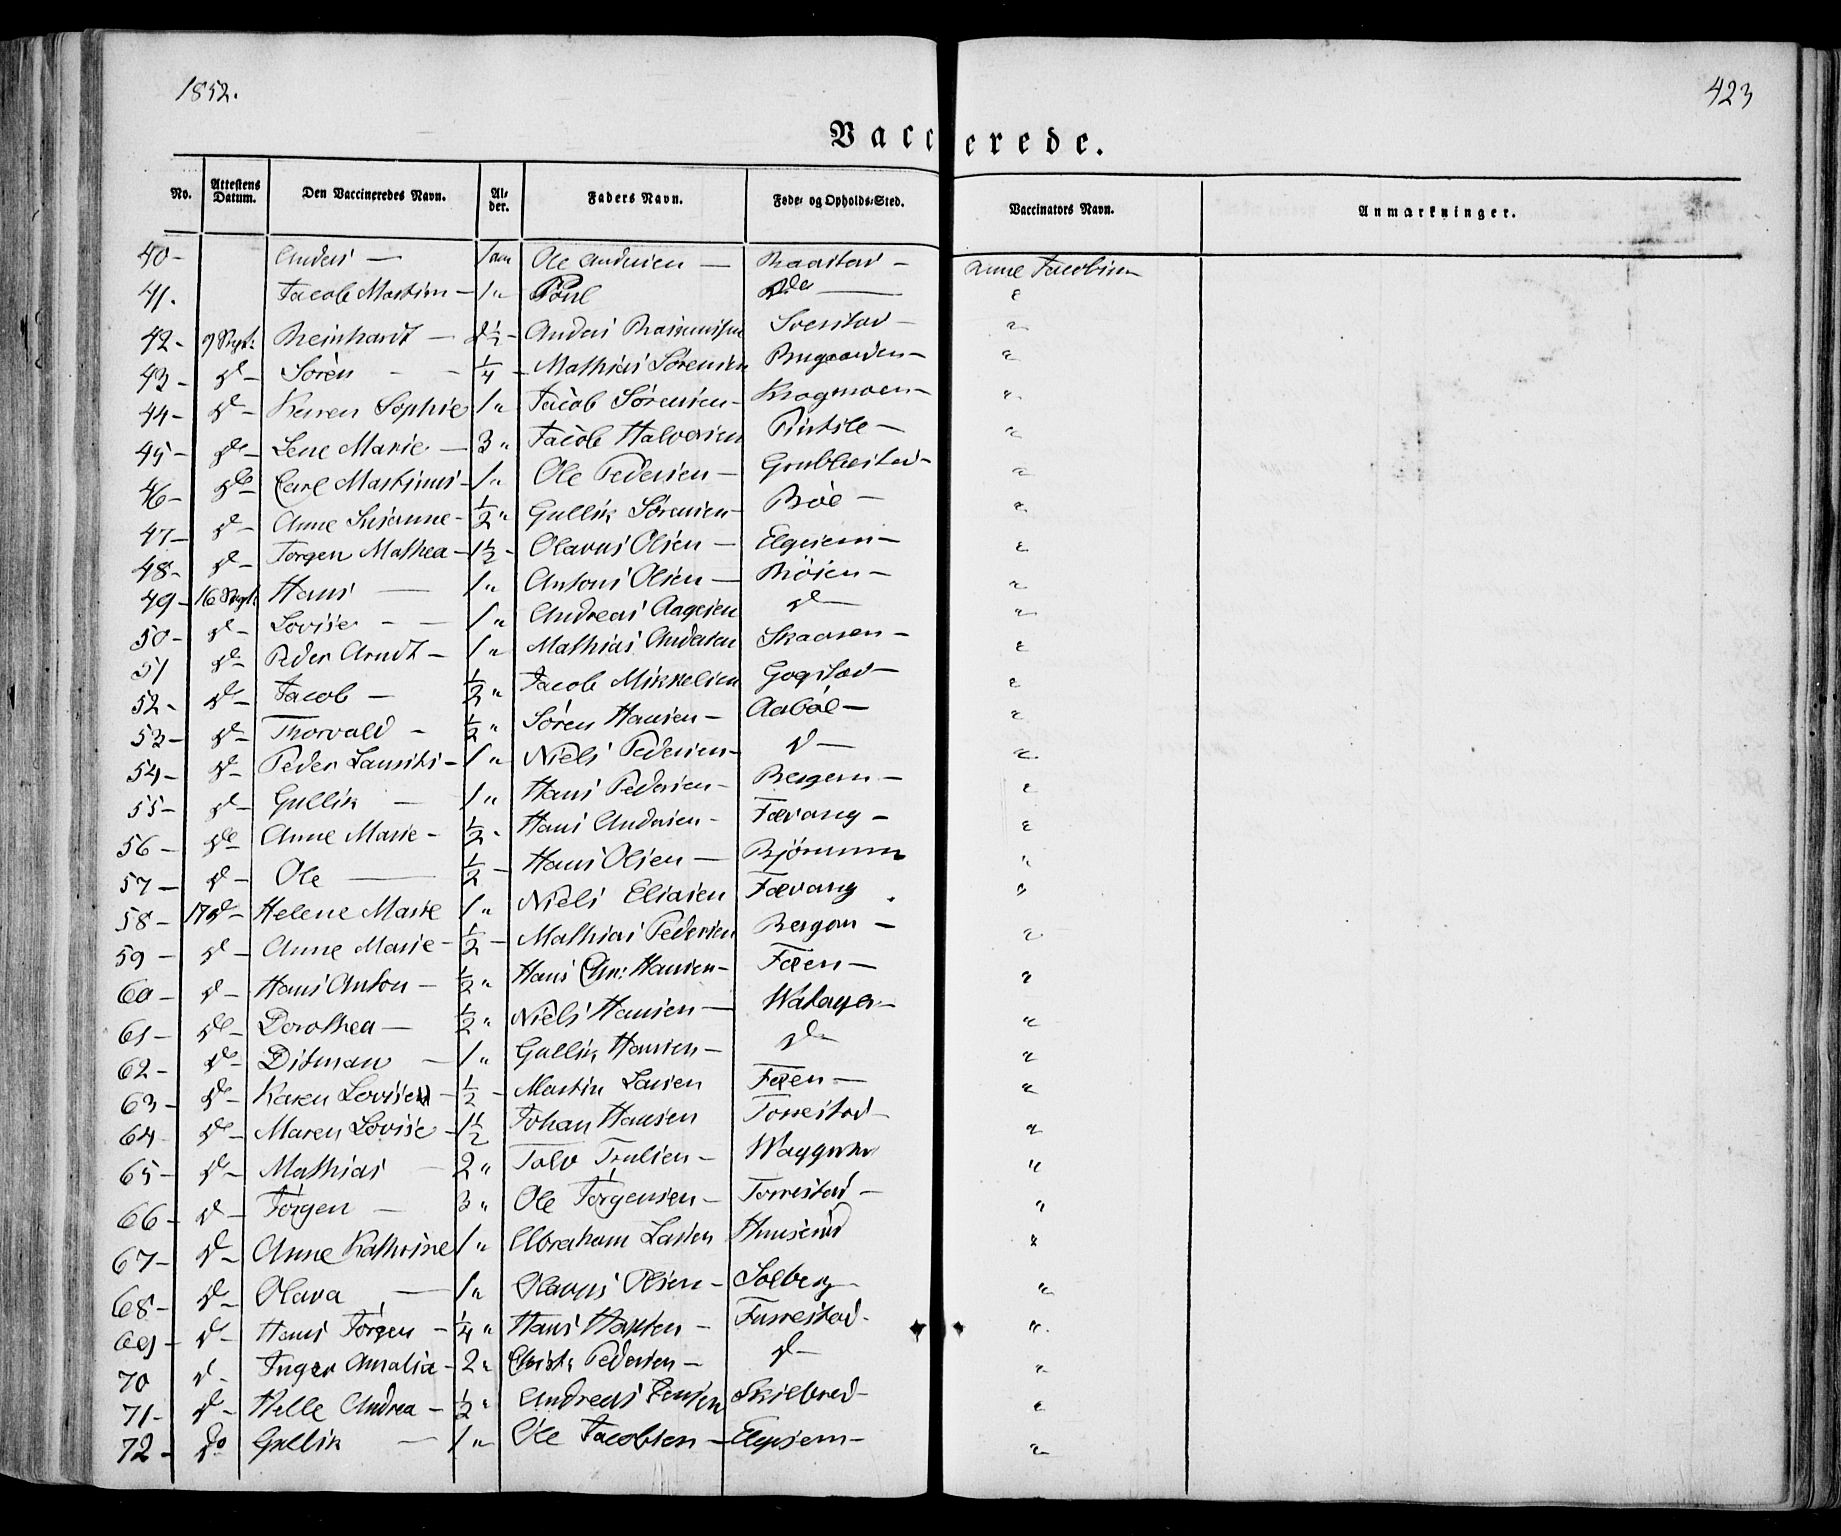 1852.
423
Vaccinerede.
No. Attestens Datum. Den Vaccineredes Navn. Alder. Faders Navn. Føde- og Opholds-Sted. Vaccinators Navn. Anmærkninger.
40- Anders — 1 aar Ole Andersen — Raastad — Anne Jacobsen
41. Jacob Martin — 1 " Poul do — "
42- 9 Sept: Reinhardt — 2½ - Anders Rasmussen Sverstad — "
43- d- Søren - - ¼ - Mathias Sørensen Brugaarden — "
44- d- Karen Sophie 1 " Jacob Sørensen - Krogmoen — "
45- d- Lene Marie — 3 " Jacob Halvorsen — "
46- do- Carl Martinus - 1 " Ole Pedersen — Grubbestad — "
47- d- Anne Susanne - ½ " Gullik Sørensen - Bøe — "
48- d- Jørgen Mathea - 1½ - Olavus Olsen — Elgesem — "
49- 16 Sept: Hans — 1 " Antoni Olsen — "
50- d- Lovise - - 1 " Andreas Aagesen d — "
51 d- Peder Arndt - 1 " Mathias Andersen Skaasen — "
52- d- Jacob — ½ " Jacob Mikkelsen Gogstad — "
53- d- Thorvald - ½ " Søren Hansen - Aabøl — "
54- d- Peder Laurits - 1 " Niels Pedersen - d — "
55- d- Gullik — 1 " Hans Pedersen - Bergem — "
56- do- Anne Marie - ½ - Hans Andersen - Fævang — "
57- d- Ole — ½ - Hans Olsen — Bjørnum "
58- 17 d- Helene Marie 1 " Niels Eliasen Fævang "
59- d- Anne Marie - ½ - Mathias Pedersen Bergem — "
60- d- Hans Anton - ½ " Hans Chr: Hansen - Feen — "
61- do- Dorothea — ½ " Niels Hansen — "
62- do- Ditman — 1 " Gullik Hansen - d - "
63- do- Karen Lovise - ½ - Martin Larsen Feen — "
64- do- Maren Lovise - 1½ Johan Hansen Torrestad — "
65- d- Mathias — 2 " Tolv Trulsen - "
66- d- Jørgen — 3 " Ole Jørgensen - Torrestad — "
67- d- Anne Kathrine 1 " Abraham Larsen "
68- d- Olava — 1 " Olavus Olsen - Solberg — "
69- d- Hans Jørgen - ¼ " Hans Hansen - Furrestad - "
70 d- Inger Amalia - 2 " Christ: Pedersen — d — "
71- d- Helle Andrea - ½ " Andreas Jensen Skielbred - "
72- do Gullik — 1 " Ole Jacobsen — Elgesem — "